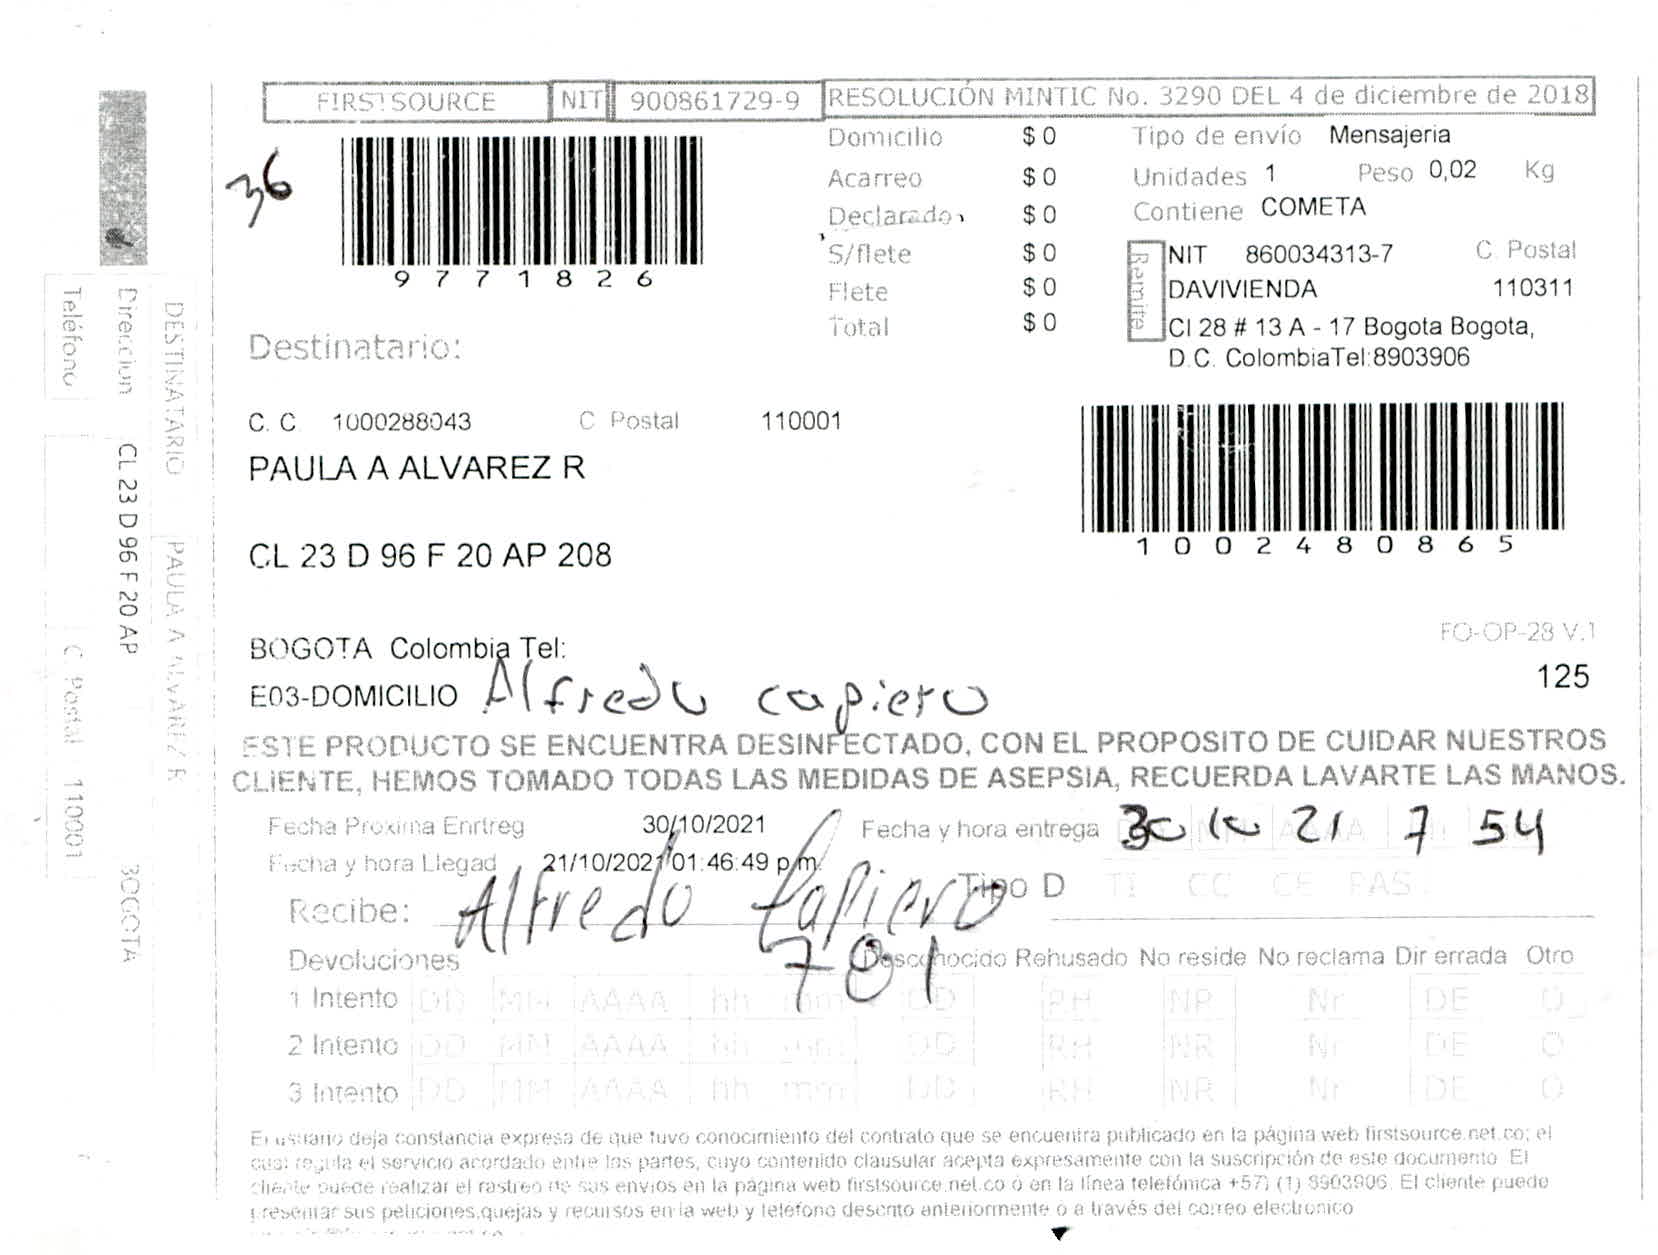 FIRSTSOURCE NIT 900861729-9 RESOLUCIÓN MINTIC No. 3290 DEL 4 de diciembre de 2018
36
9771826
Domicilio $ 0
Acarreo $ 0
Declarado $ 0
S/flete $ 0
Flete $ 0
Total $ 0
Tipo de envío Mensajeria
Unidades 1 Peso 0,02 Kg
Contiene COMETA
Remite
NIT 860034313-7 C. Postal
DAVIVIENDA 110311
Cl 28 # 13 A - 17 Bogota Bogota,
D.C. ColombiaTel:8903906
1002480865
Destinatario:
C. C. 1000288043 C Postal 110001
PAULA A ALVAREZ R
CL 23 D 96 F 20 AP 208
BOGOTA Colombia Tel:
FO-OP-28 V.1
125
E03-DOMICILIO Alfredo capiero
ESTE PRODUCTO SE ENCUENTRA DESINFECTADO, CON EL PROPOSITO DE CUIDAR NUESTROS
CLIENTE, HEMOS TOMADO TODAS LAS MEDIDAS DE ASEPSIA, RECUERDA LAVARTE LAS MANOS.
Fecha Proxima Enrtreg 30/10/2021 Fecha y hora entrega 30 10 21 7 54
Fecha y hora Llegad 21/10/2021 01:46:49 p.m.
Tipo D TI CC CE PAS
Recibe: Alfredo Capiero
781
Devoluciones Desconocido Rehusado No reside No reclama Dir errada Otro
1 Intento DD MM AAAA hh mm DD RH NR Nr DE O
2 Intento DD MM AAAA hh mm DD RH NR Nr DE O
3 Intento DD MM AAAA hh mm DD RH NR Nr DE O
El usuario deja constancia expresa de que tuvo conocimiento del contrato que se encuentra publicado en la página web firstsource.net.co; el
cual regula el servicio acordado entre las partes, cuyo contenido clausular acepta expresamente con la suscripción de este documento. El
cliente puede realizar el rastreo de sus envios en la página web firstsource.net.co o en la línea telefónica +57) (1) 8903906. El cliente puede
presentar sus peticiones,quejas y recursos en la web y telefono descrito anteriormente o a través del correo electronico
DESTINATARIO PAULA A ALVAREZ R
Direccion CL 23 D 96 F 20 AP BOGOTA
Teléfono C. Postal 110001